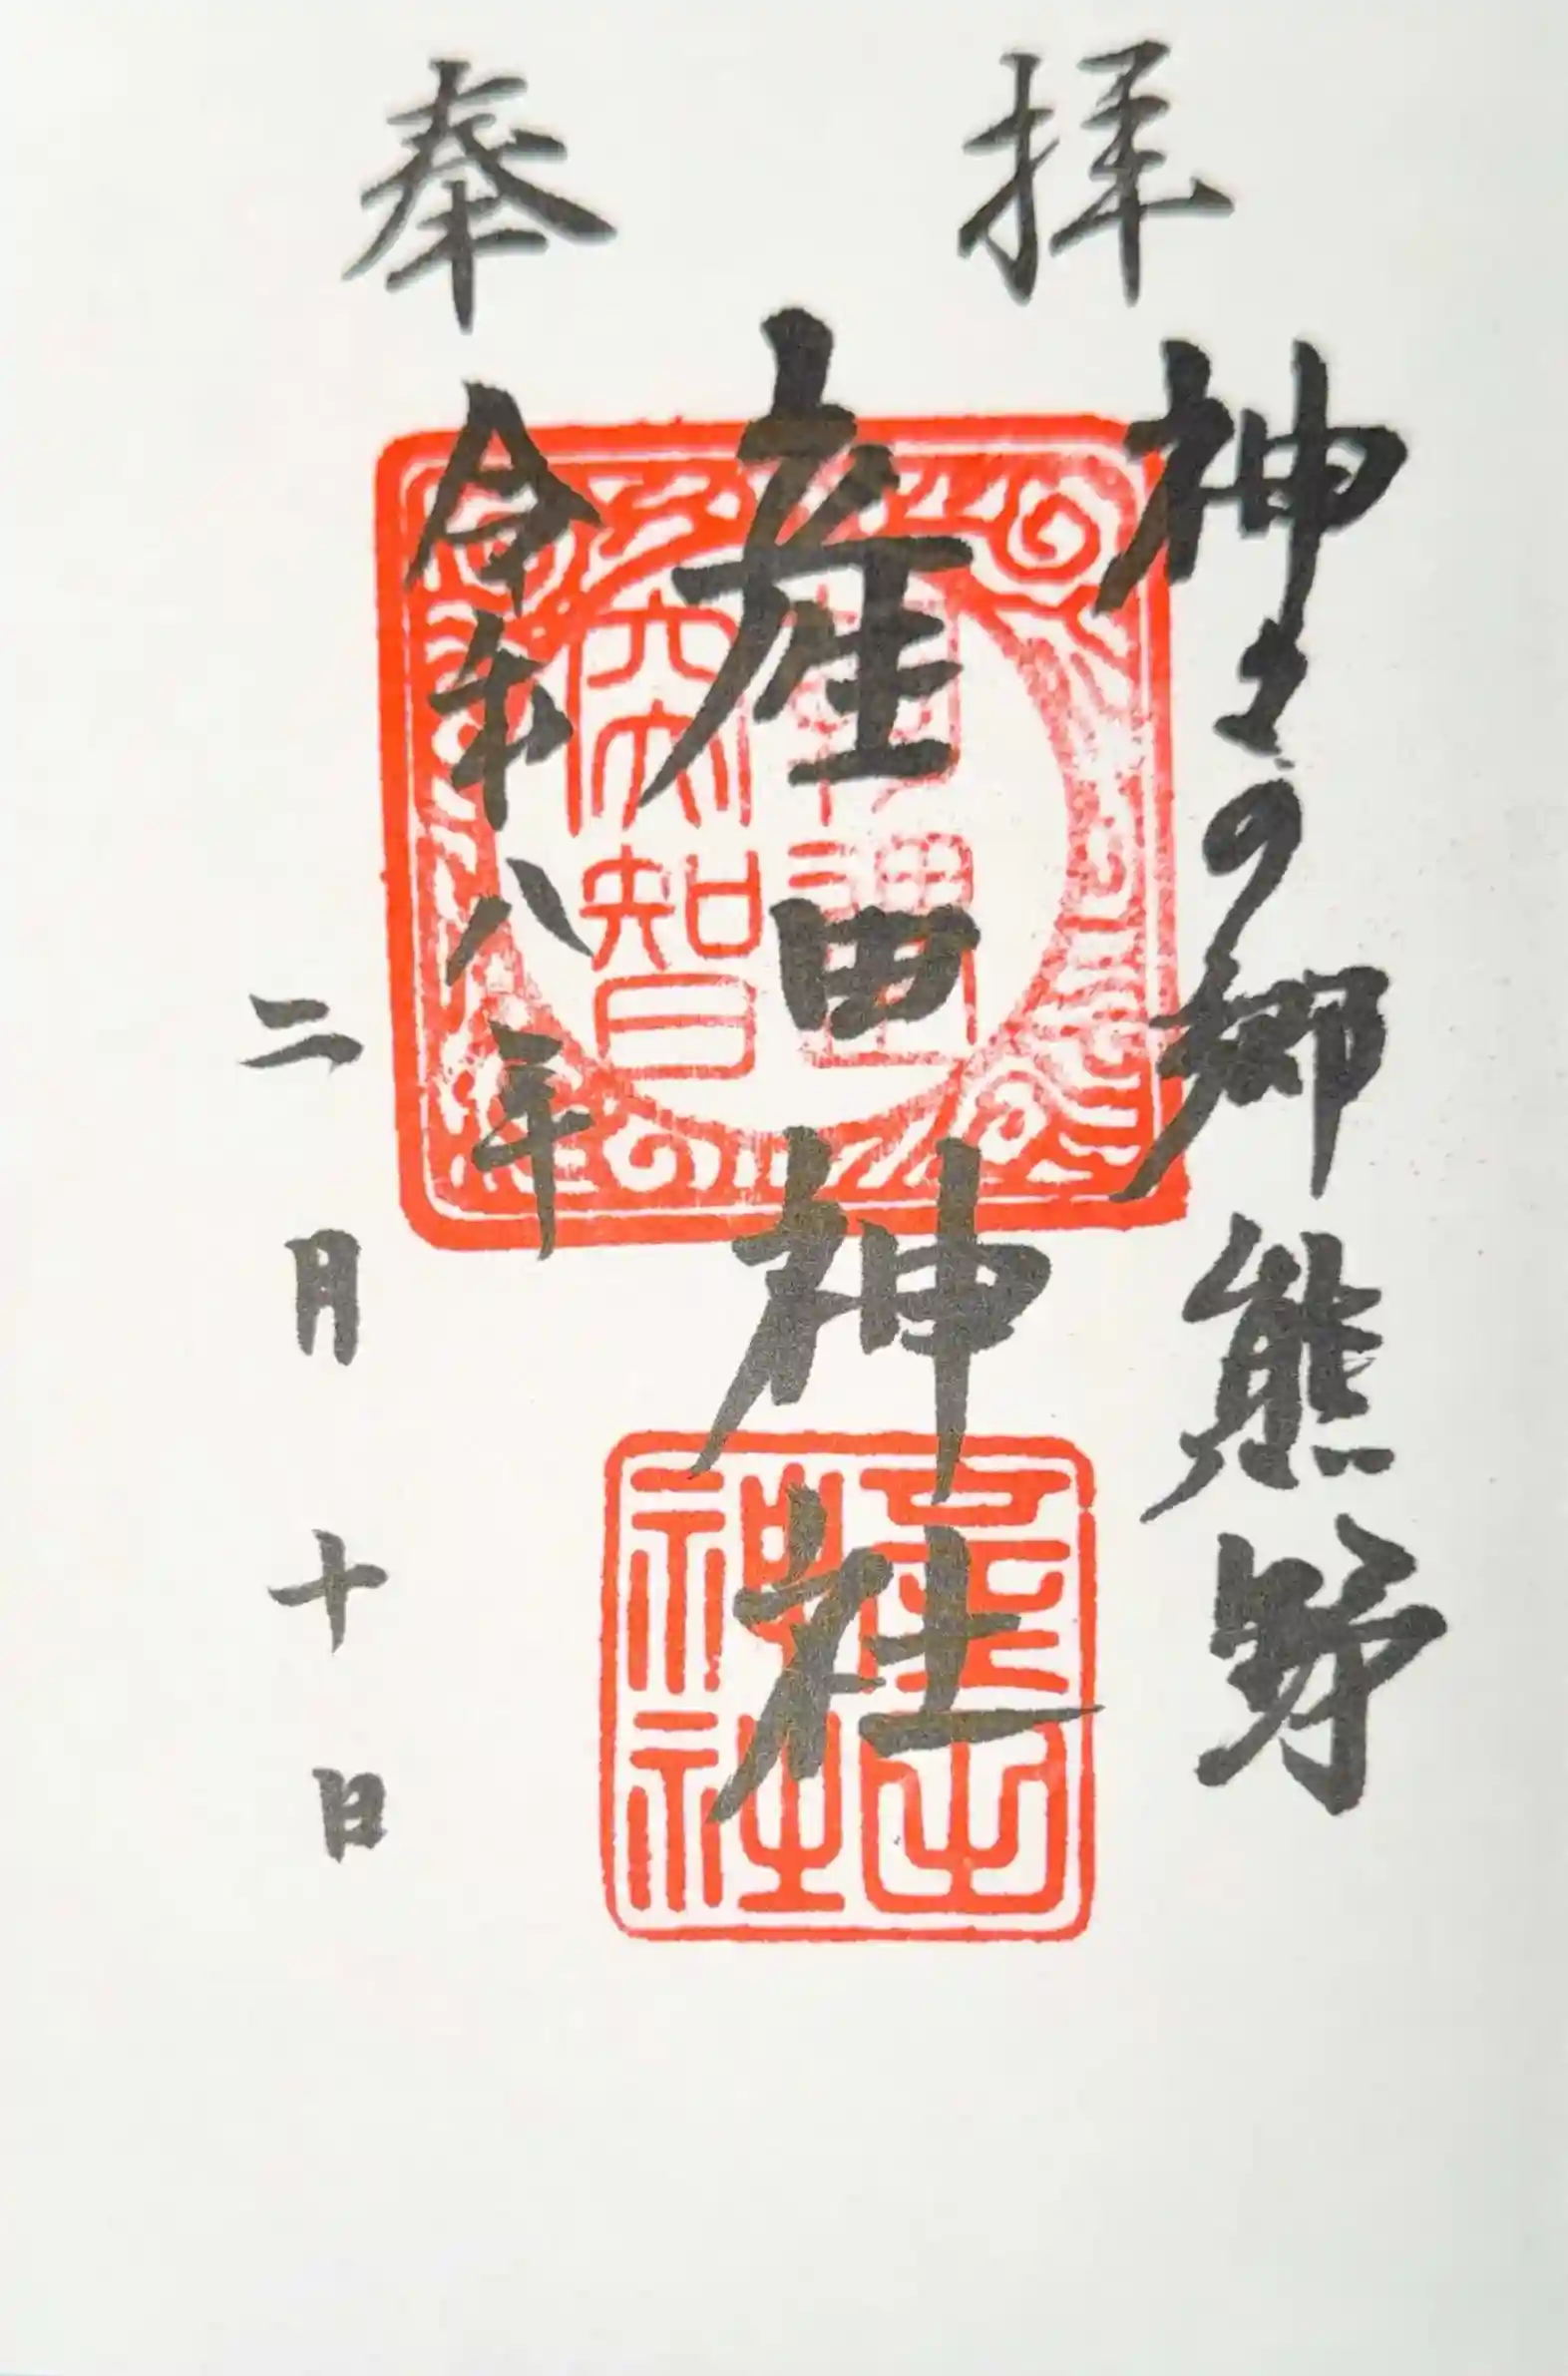 奉拝
神々の郷熊野
産田神社
令和八年
二月十日
産田
神社